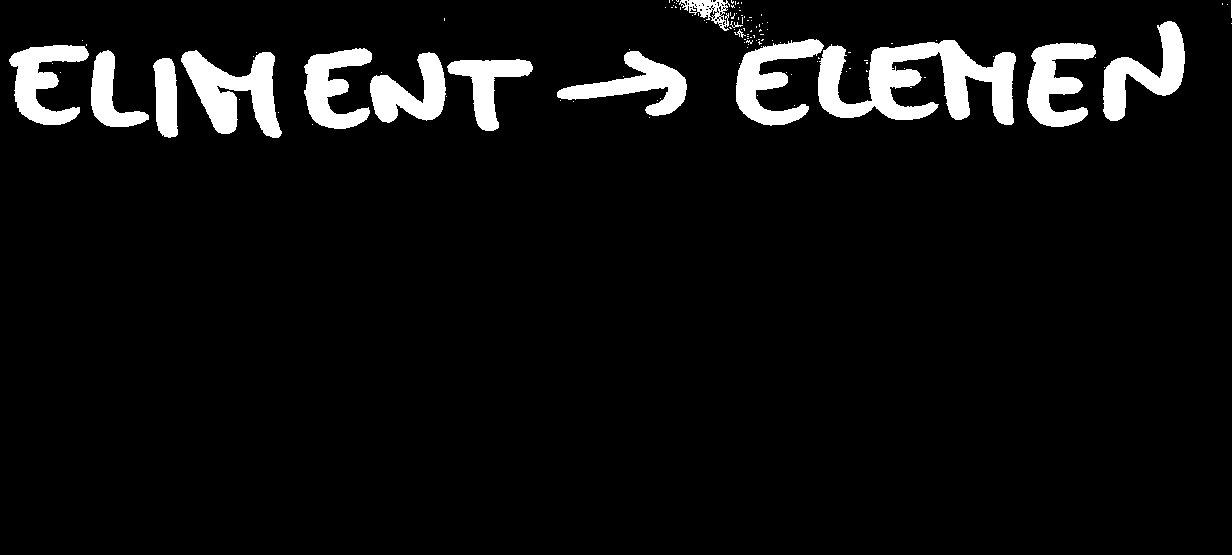 ELIMENT → ELEMEN